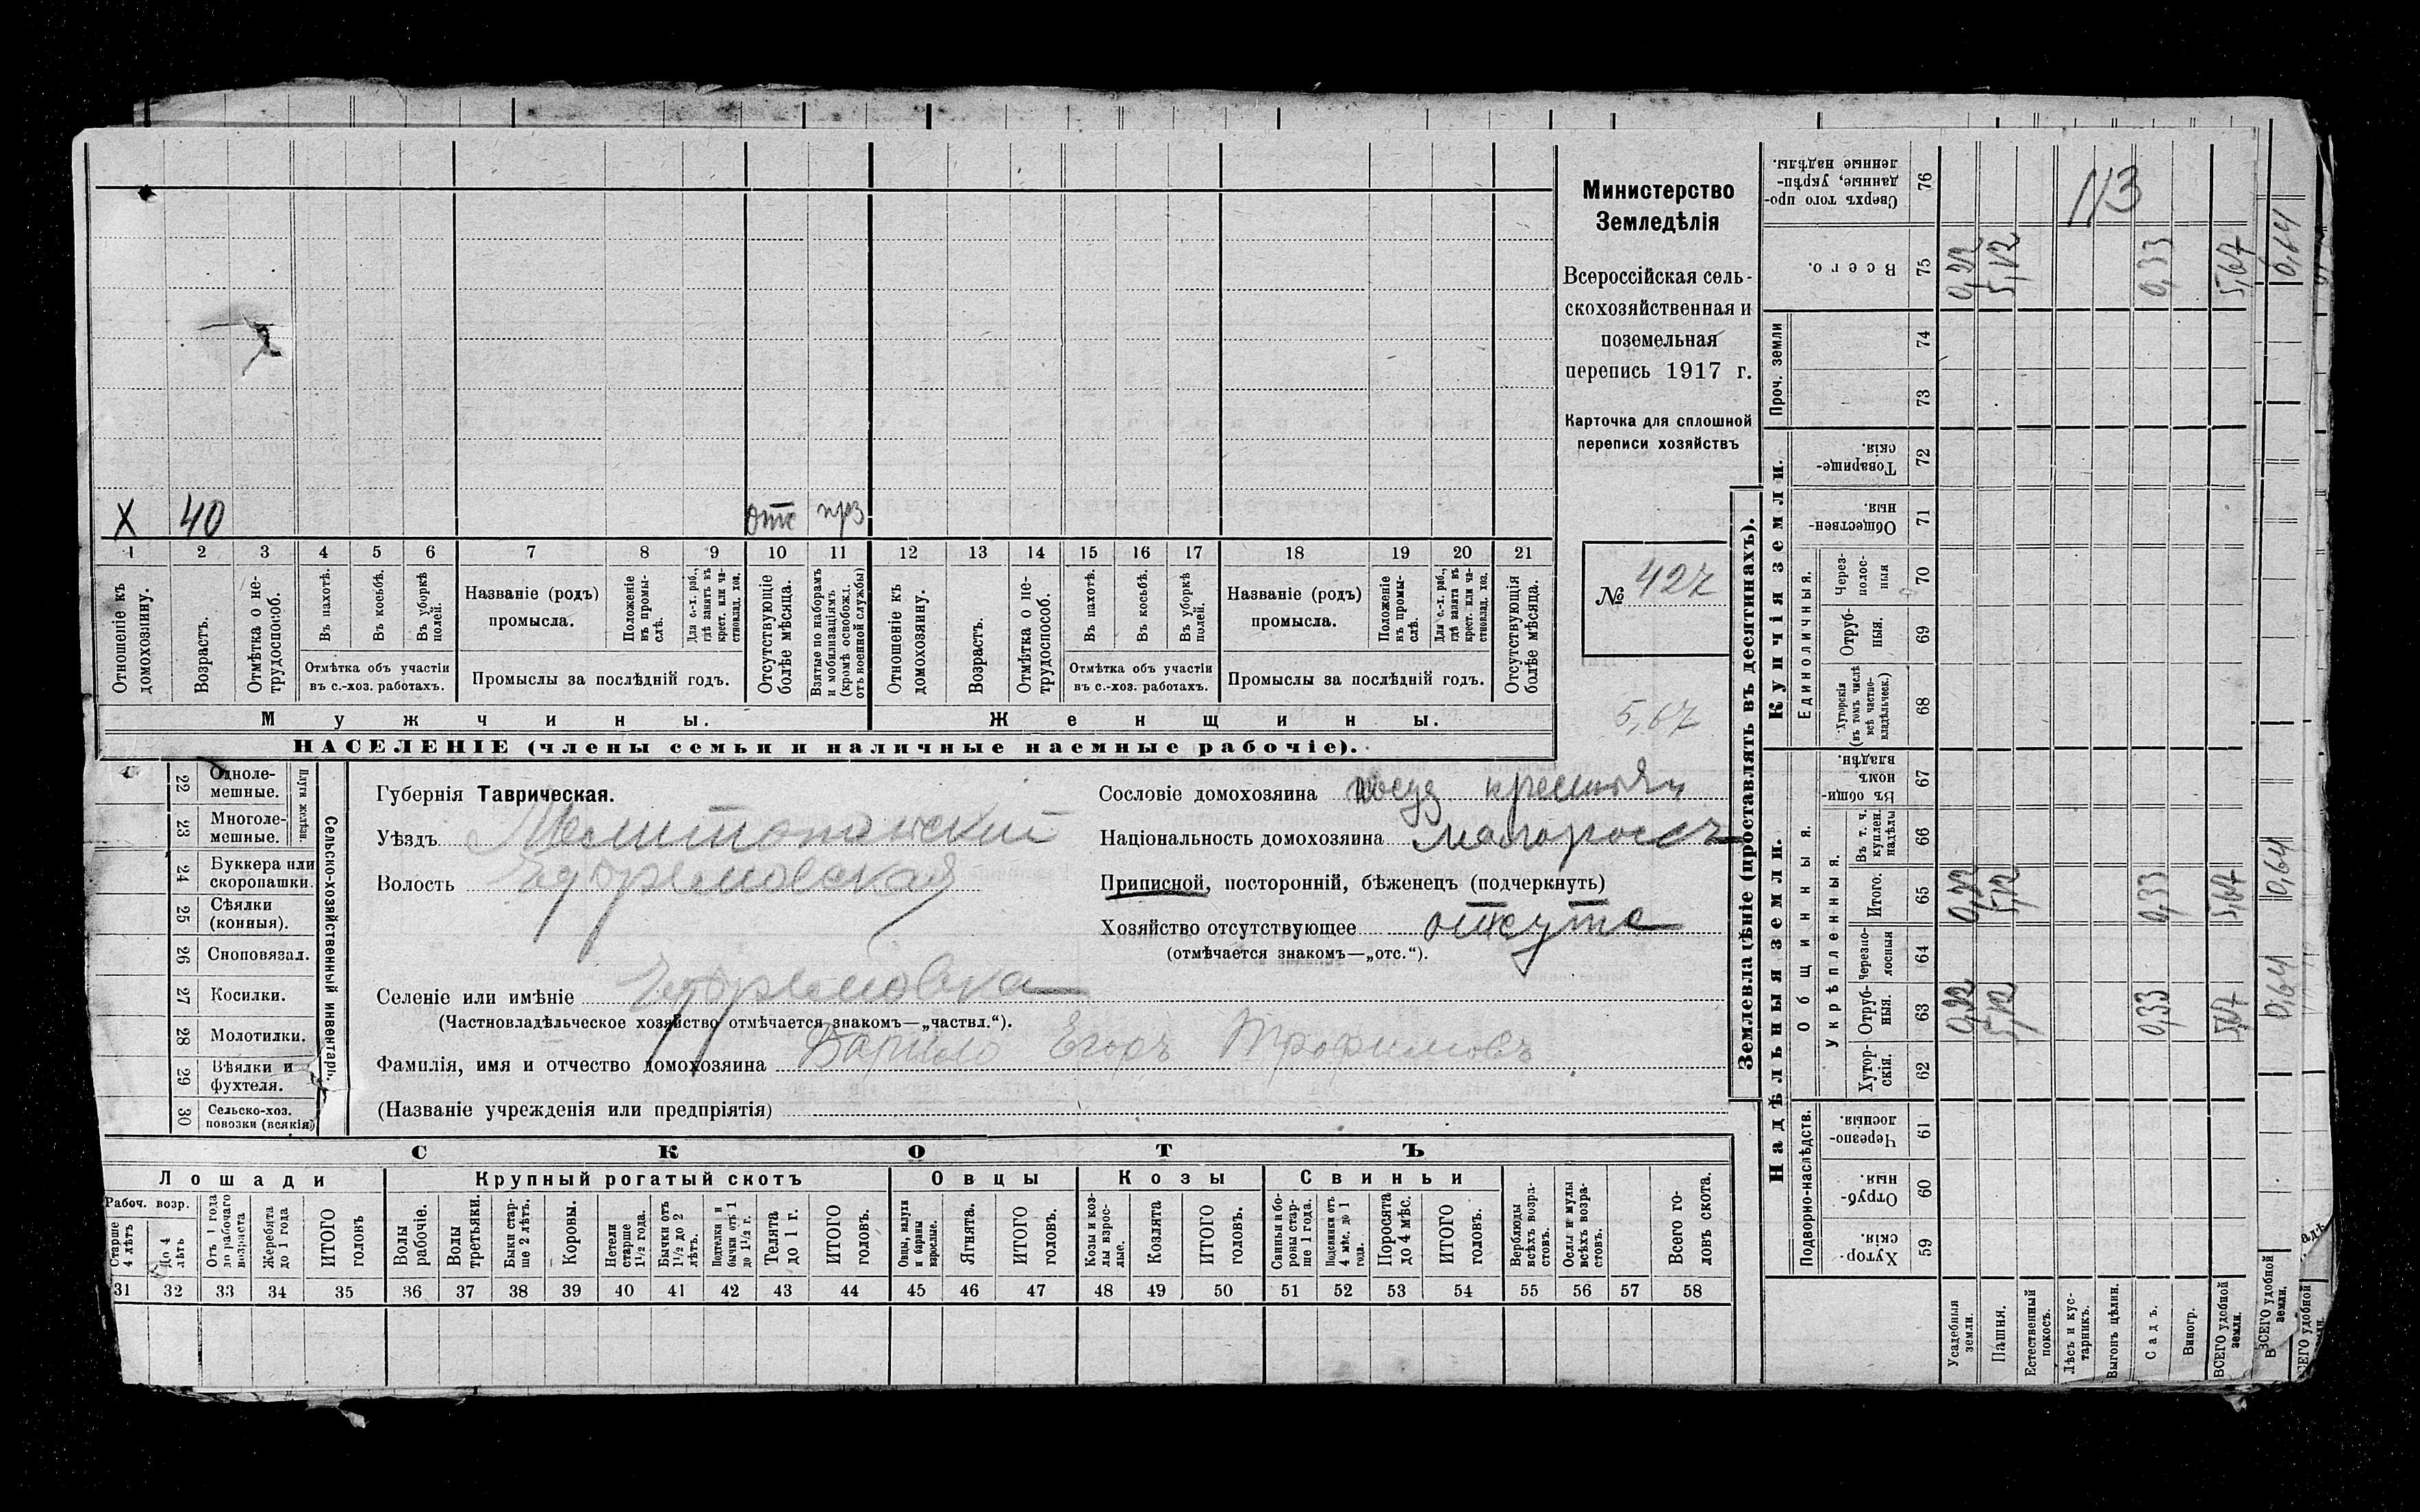 Министерство
Земледѣлія
Всероссійская сель-
скохозяйственная и
поземельная
перепись 1917 г.
Карточка для сплошной
переписи хозяйствъ
№ 427
5,67
X 40 отс прз
1 2 3 4 5 6 7 8 9 10 11 12 13 14 15 16 17 18 19 20 21
Отношеніе къ домохозяину.
Возрастъ.
Отмѣтка о не-трудоспособ.
Въ пахотѣ.
Въ косьбѣ.
Въ уборкѣ полей.
Отмѣтка объ участіи
въ с.-хоз. работахъ.
Названіе (родъ)
промысла.
Положеніе въ промы-слѣ.
Для с.-х. раб., гдѣ занятъ въ крест. или ча-стновлад. хоз.
Промыслы за послѣдній годъ.
Отсутствующіе болѣе мѣсяца.
Взятые по наборамъ и мобилизаціямъ (кромѣ освобожд. отъ военной службы)
Отношеніе къ домохозяину.
Возрастъ.
Отмѣтка о не-трудоспособ.
Въ пахотѣ.
Въ косьбѣ.
Въ уборкѣ полей.
Отмѣтка объ участіи
въ с.-хоз. работахъ.
Названіе (родъ)
промысла.
Положеніе въ промы-слѣ.
Для с.-х. раб., гдѣ занята въ крест. или ча-стновлад. хоз.
Промыслы за послѣдній годъ.
Отсутствующія болѣе мѣсяца.
Мужчины. Женщины.
НАСЕЛЕНІЕ (члены семьи и наличные наемные рабочіе).
Сельско-хозяйственный инвентарь.
Плуги желѣзн.
22 Одноле-мешные.
23 Многоле-мешные.
24 Буккера или скоропашки.
25 Сѣялки (конныя).
26 Сноповязал.
27 Косилки.
28 Молотилки.
29 Вѣялки и фухтеля.
30 Сельско-хоз. повозки (всякія)
Губернія Таврическая.
Уѣздъ Мелитопольскій
Волость Ефремовская
Селеніе или имѣніе Ефремовка
(Частновладѣльческое хозяйство отмѣчается знакомъ—„частвл.“).
Фамилія, имя и отчество домохозяина Егоръ Трофимовъ
(Названіе учрежденія или предпріятія)
Сословіе домохозяина крестьян
Національность домохозяина малороссъ
Приписной, посторонній, бѣженецъ (подчеркнуть)
Хозяйство отсутствующее отсутс
(отмѣчается знакомъ—„отс.“).
СКОТЪ
Лошади Крупный рогатый скотъ Овцы Козы Свиньи
Рабоч. возр.
Старше 4 лѣтъ
До 4 лѣтъ
Отъ 1 года до рабочаго возраста
Жеребята до 1 года
ИТОГО головъ
Волы рабочіе.
Волы третьяки.
Быки стар-ше 2 лѣтъ.
Коровы.
Нетели старше 1½ года.
Бычки отъ 1½ до 2 лѣтъ.
Подтелки и бычки отъ 1 до 1½ г.
Телята до 1 г.
ИТОГО головъ.
Овцы, валухи и бараны взрослые.
Ягнята.
ИТОГО головъ.
Козы и коз-лы взрос-лые.
Козлята
ИТОГО головъ.
Свиньи и бо-ровы стар-ше 1 года.
Подсвинки отъ 4 мѣс. до 1 года.
Поросята до 4 мѣс.
ИТОГО головъ.
Верблюды всѣхъ возра-стовъ.
Ослы и мулы всѣхъ возра-стовъ.
Всего го-ловъ скота.
31 32 33 34 35 36 37 38 39 40 41 42 43 44 45 46 47 48 49 50 51 52 53 54 55 56 57 58
Землевладѣніе (проставлять въ десятинахъ).
Надѣльныя земли. Купчія земли. Проч. земли
Подворно-наслѣдств.
Общинныя.
Укрѣпленныя.
Единоличныя.
Хутор-скія. 59
Отруб-ныя. 60
Черезпо-лосныя. 61
Хутор-скія. 62
Отруб-ныя. 63 0,22 5,12 0,33 5,67
Черезпо-лосныя 64
Итого. 65 0,22 5,12 0,33 5,67
Въ т. ч. куплен. надѣлы 66
Въ общи-номъ владѣн. 67
Хуторскія (въ томъ числѣ всѣ частно-владѣльческ.) 68
Отруб-ныя. 69
Через-полос-ныя 70
Обществен-ныя. 71
Товарище-скія. 72
73
74
Всего. 75 0,22 5,12 0,33 5,67
Сверхъ того про-данные, укрѣп-ленные надѣлы. 76
Усадебныя земли.
Пашня.
Естественный покосъ.
Лѣсъ и кус-тарникъ.
Выгонъ цѣлин.
Садъ.
Виногр.
ВСЕГО удобной земли.
ВСЕГО удобной земли.
0,64
0,64
0,64